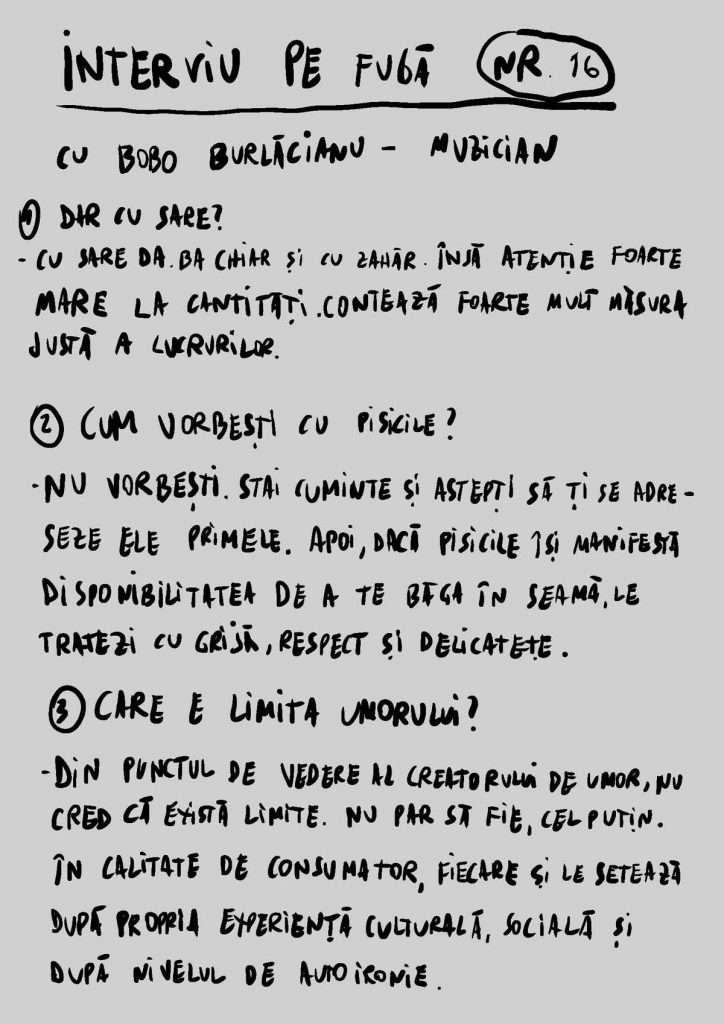 INTERVIU PE FUGĂ NR. 16
CU BOBO BURLĂCIANU - MUZICIAN
1 DAR CU SARE?
- CU SARE DA. BA CHIAR ȘI CU ZAHĂR. ÎNSĂ ATENȚIE FOARTE
MARE LA CANTITĂȚI. CONTEAZĂ FOARTE MULT MĂSURA
JUSTĂ A LUCRURILOR.
2 CUM VORBEȘTI CU PISICILE?
- NU VORBEȘTI. STAI CUMINTE ȘI ASTEPȚI SĂ ȚI SE ADRE-
SEZE ELE PRIMELE. APOI, DACĂ PISICILE ÎȘI MANIFESTĂ
DISPONIBILITATEA DE A TE BĂGA ÎN SEAMĂ, LE
TRATEZI CU GRIJĂ, RESPECT ȘI DELICATEȚE.
3 CARE E LIMITA UMORULUI?
- DIN PUNCTUL DE VEDERE AL CREATORULUI DE UMOR, NU
CRED CĂ EXISTĂ LIMITE. NU PAR SĂ FIE, CEL PUTIN.
ÎN CALITATE DE CONSUMATOR, FIECARE ȘI LE SETEAZĂ
DUPĂ PROPRIA EXPERIENȚĂ CULTURALĂ, SOCIALĂ ȘI
DUPĂ NIVELUL DE AUTOIRONIE.